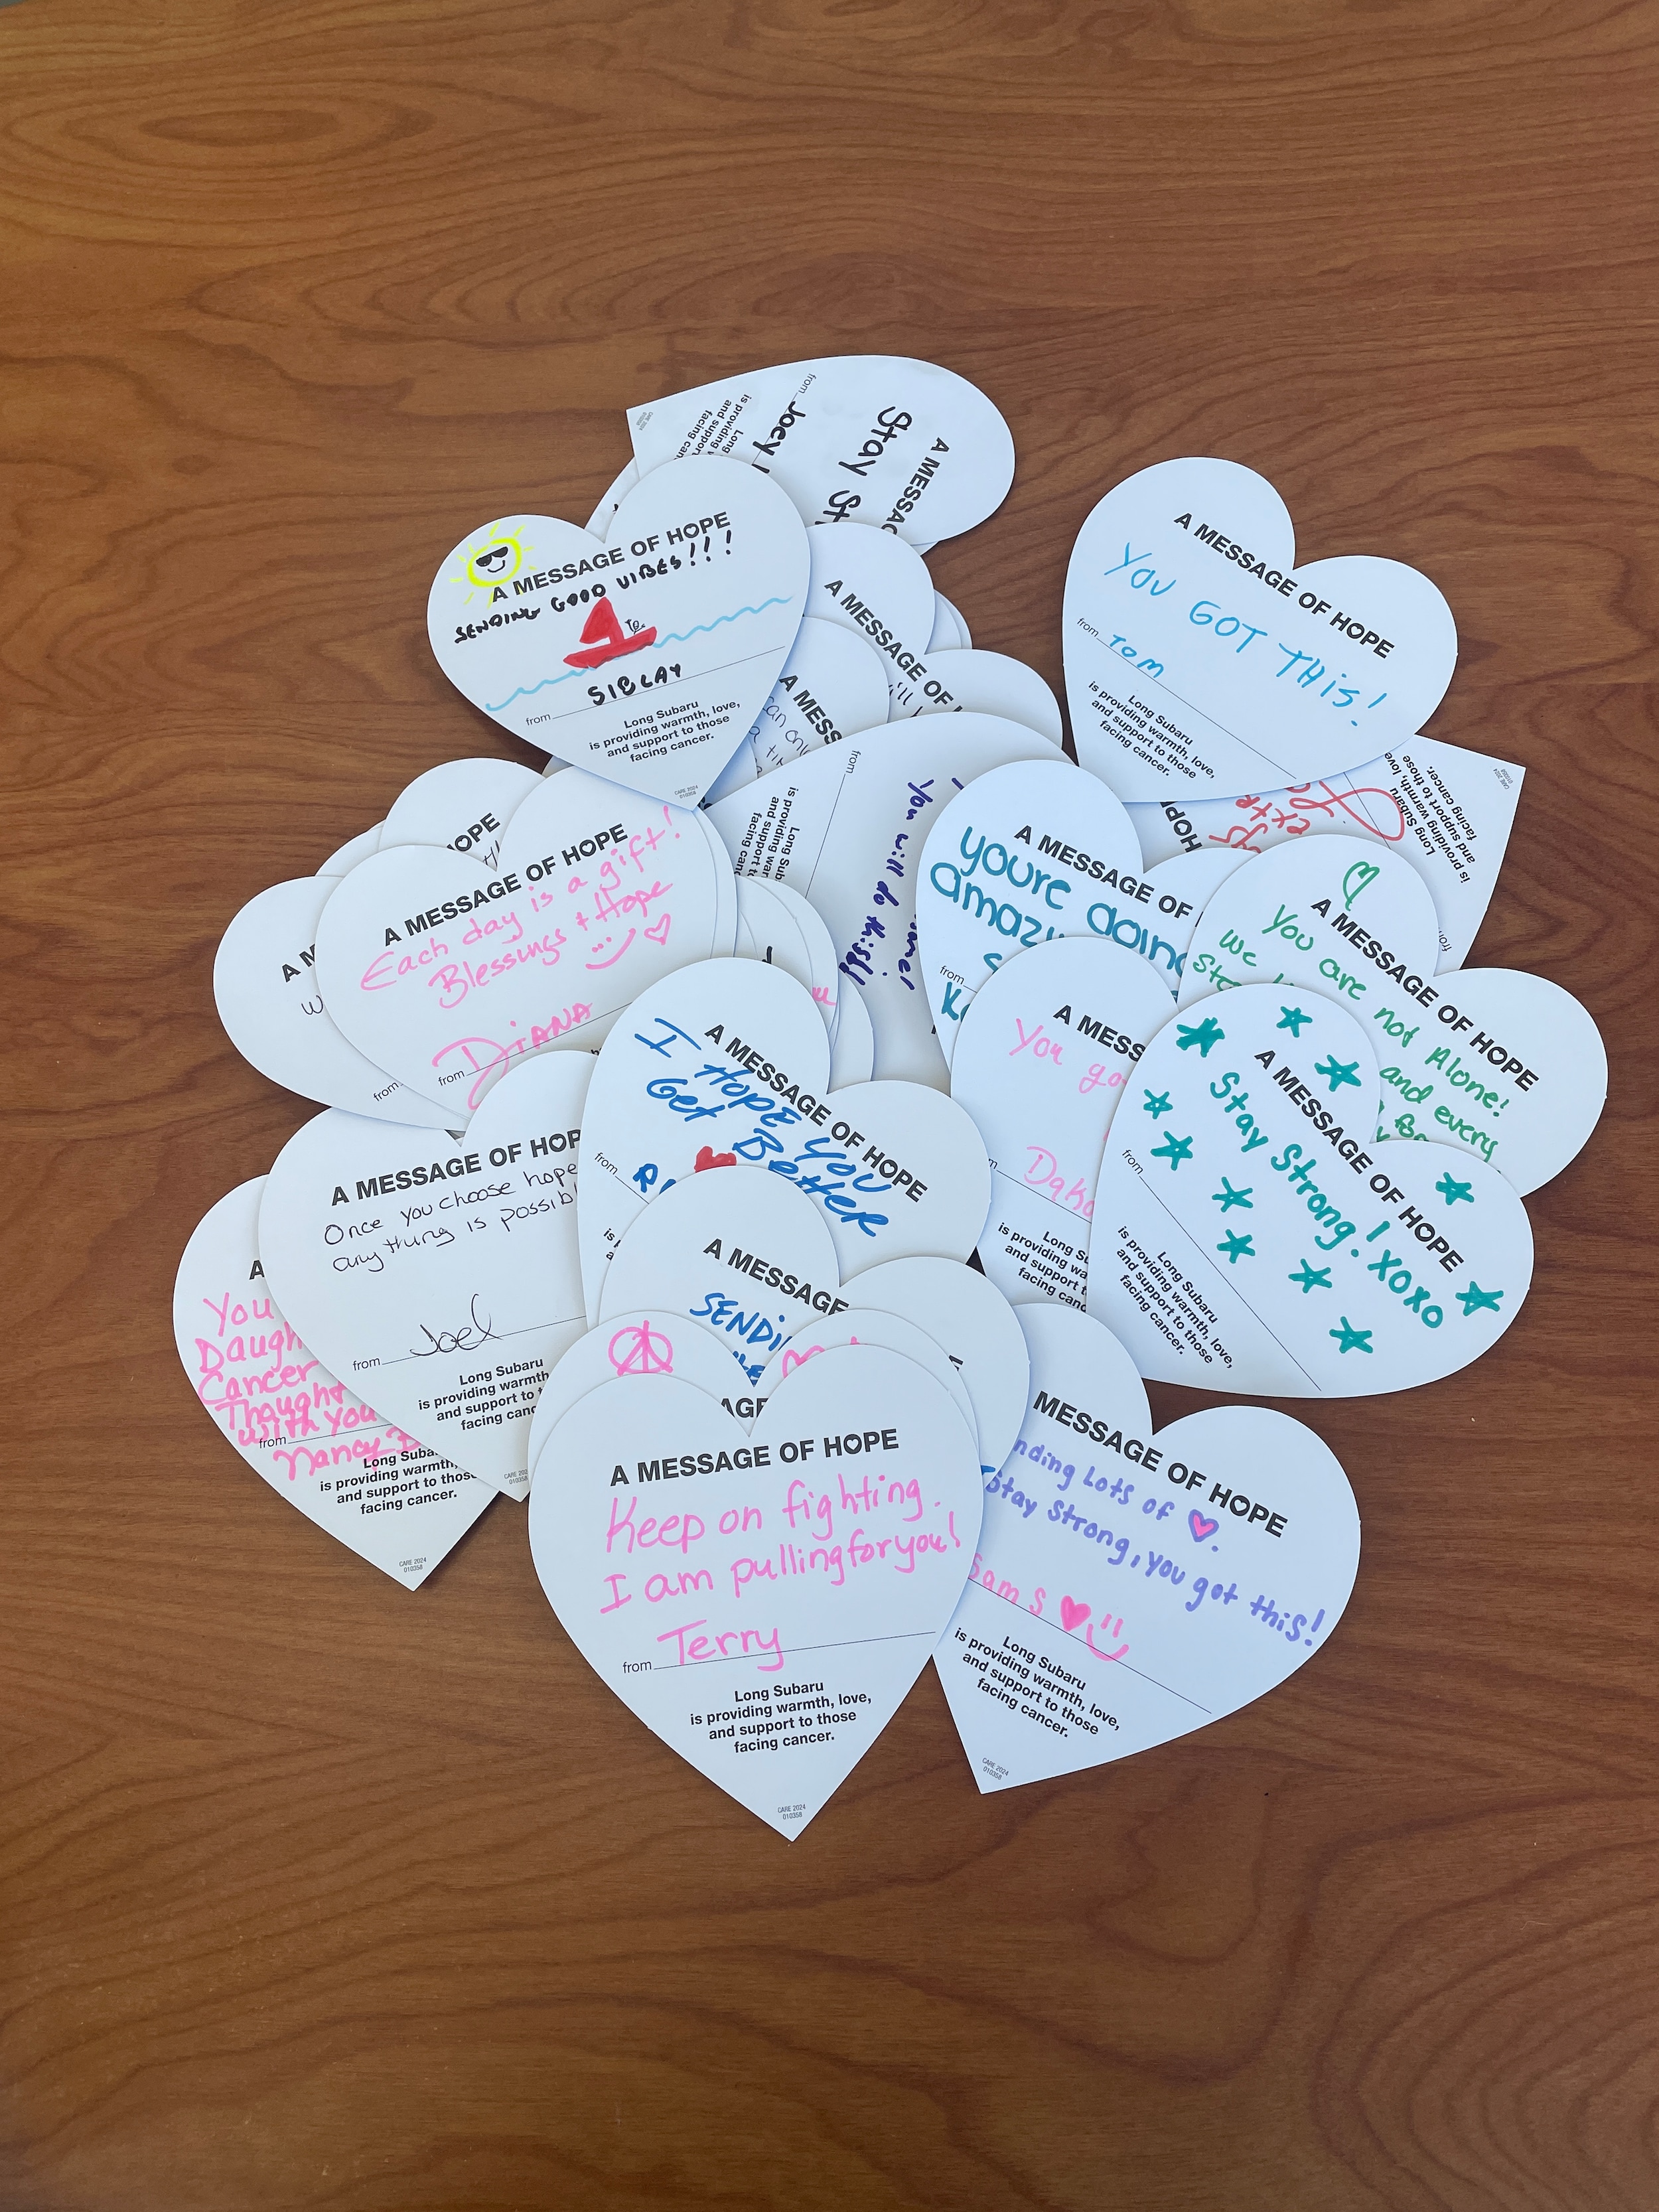 A MESSAG
Stay St
from Joey
Long
is providing
and support
facing can
A MESSAGE OF HOPE
SENDING GOOD VIBES!!!
from SIBLAY
Long Subaru
is providing warmth, love,
and support to those
facing cancer.
CARE 2024
010358
A MESSAGE OF HOPE
YOU GOT THIS!
from TOM
Long Subaru
is providing warmth, love,
and support to those
facing cancer.
A MESSAGE OF
A MESS
can only
from
you will do this!!
is providing wa
and support t
facing canc
HOP
Long Subaru
is providing warmth, love
and support to those
facing cancer.
from
A MESSAGE OF
you're doing
amaz
from
A MESSAGE OF HOPE
You are not Alone!
We
and every
OPE
A M
from
A MESSAGE OF HOPE
Each day is a gift!
Blessings + Hope
from DIANA
A MESSAGE OF HOPE
I HOPE YOU
Get Better
from
A MESS
You go
Dako
Long S
is providing
and support t
facing canc
A MESSAGE OF HOPE
Stay Strong! XOXO
from
Long Subaru
is providing warmth, love,
and support to those
facing cancer.
A MESSAGE OF HOP
Once you choose hope
anything is possibl
from Joel
Long Subaru
is providing warmth
and support to
facing canc
A
You
Daugh
Cancer
Thought
with you
from Nancy B
Long Suba
is providing warmth,
and support to those
facing cancer.
CARE 2024
010358
A MESSAGE
SENDI
AGE
A MESSAGE OF HOPE
Keep on fighting.
I am pulling for you!
from Terry
Long Subaru
is providing warmth, love,
and support to those
facing cancer.
CARE 2024
010358
MESSAGE OF HOPE
nding Lots of
Stay Strong, you got this!
Sam S
Long Subaru
is providing warmth, love,
and support to those
facing cancer.
CARE 2024
010358